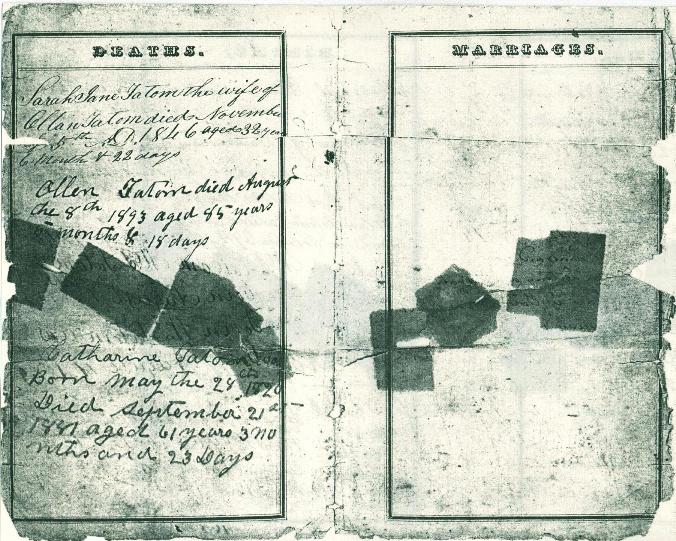 DEATHS.
Sarah Jane Tatom the wife of
Allan Tatom died November
5th A.D. 1846 aged 32 year
6 month & 22 days
Allen Tatom died August
the 8th 1893 aged 85 years
months & 18 days
Catharine Tatom
Born may the 28th 1820
Died September 21st
1881 aged 61 years 3 mo
nths and 23 Days
MARRIAGES.